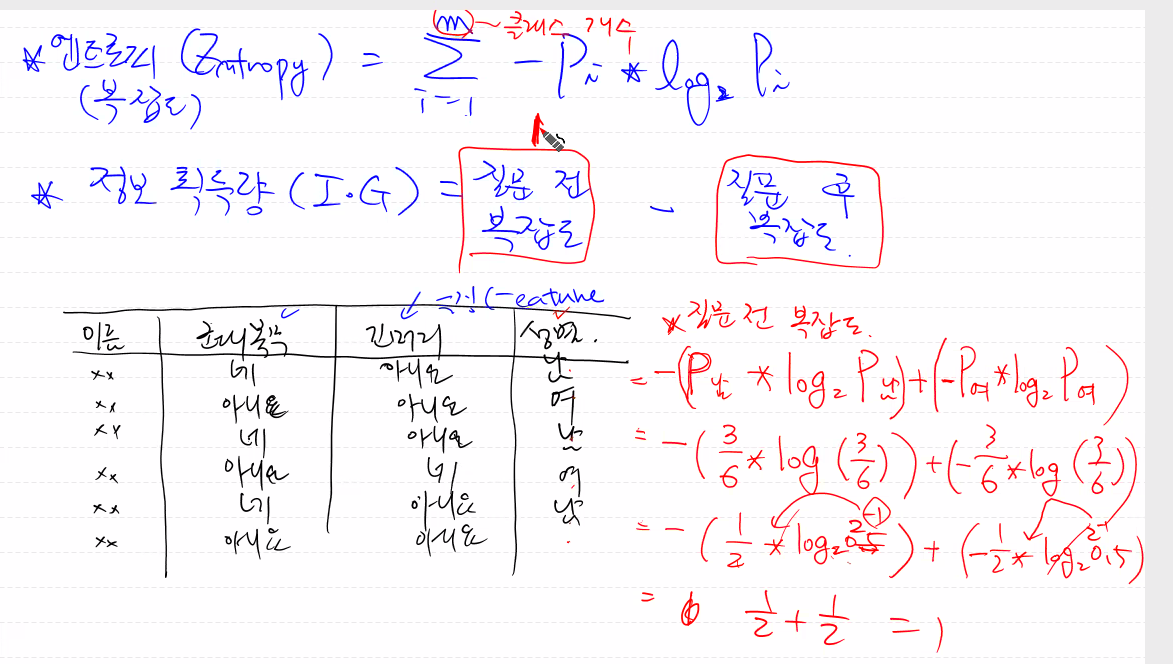 m ~ 클래스 개수
* 엔트로피 (Entropy) = Σ - Pi * log₂ Pi
i=1
(복잡도)
* 정보 획득량 (I.G) = 질문 전 복잡도 - 질문 후 복잡도.
특징 (Feature
이름 군대복무 긴머리 성별.
xx 네 아니요 남
xx 아니요 아니요 여
xx 네 아니요 남
xx 아니요 네 여
xx 네 아니요 남
xx 아니요 아니요
* 질문 전 복잡도.
= -(P남 * log₂ P남) + (-P여 * log₂ P여)
= -(3/6 * log (3/6)) + (-3/6 * log (3/6))
= -(1/2 * log₂ 0.5) + (-1/2 * log₂ 0.5)
2 -1
2 -1
= 1/2 + 1/2 = 1